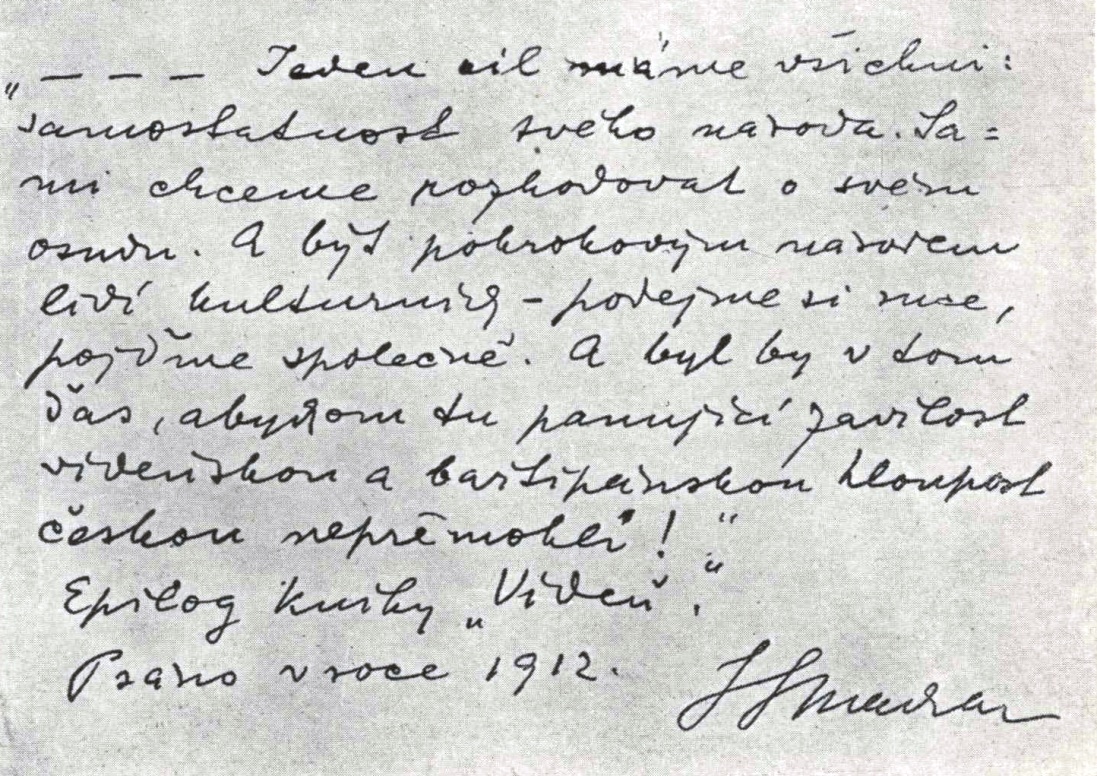 „ – – – – Jeden cil máme všichni:
samostatnost svého naroda. Sa=
mi chceme rozhodovat o svém
osudu. A být pokrokovým narodem
lidí kulturnich – podejme si ruce,
pojďme společně. A byl by v tom
ďas, abychom tu panující zavilost
vídeňskou a bartipánskou hloupost
českou nepřemohli! “
Epilog knihy „Vídeň“.
Psáno v roce 1912.